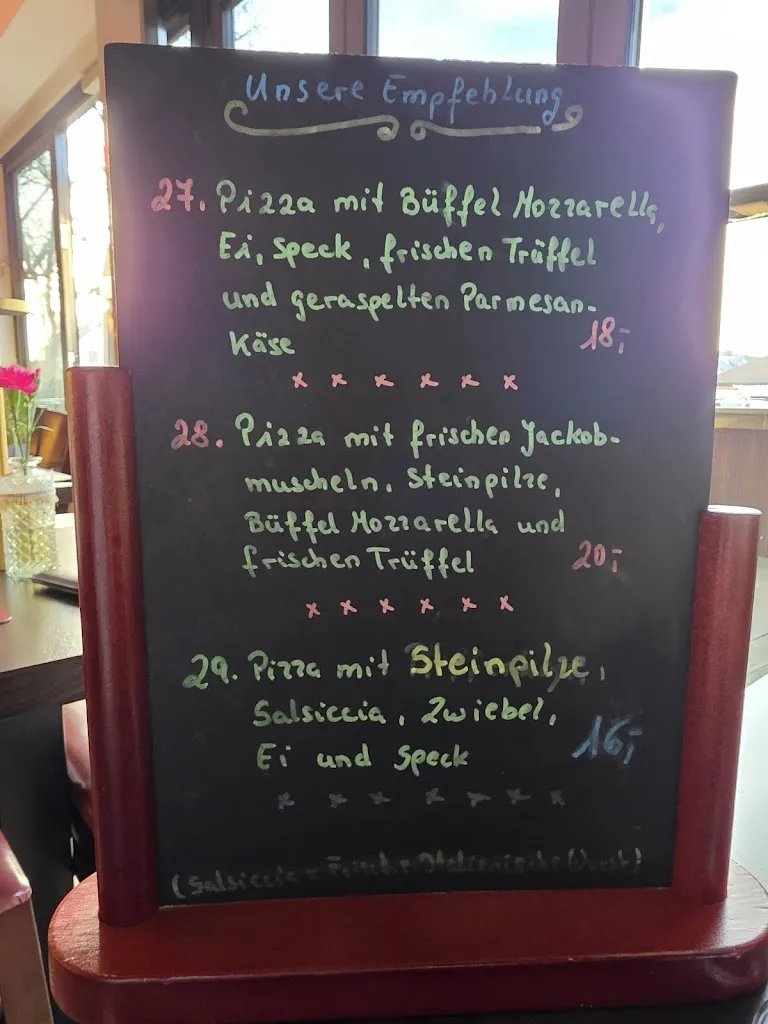 Unsere Empfehlung
27. Pizza mit Büffel Mozzarella,
Ei, Speck, frischen Trüffel
und geraspelten Parmesan-
Käse 18,-
x x x x x x
28. Pizza mit frischen Jackob-
muscheln, Steinpilze,
Büffel Mozzarella und
frischen Trüffel 20,-
x x x x x x
29. Pizza mit Steinpilze,
Salsiccia, Zwiebel,
Ei und Speck 16,-
x x x x x x x
(Salsiccia = Frische Italienische Wurst)